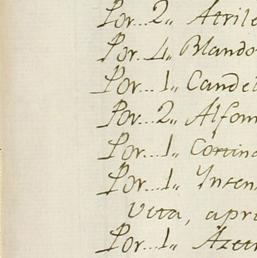 Por... 2,, Atrile
Por.. 4,, Blando
Por... 1,, Candel
Por... 2,, Alfom
Por... 1,, Cortina
Por... 1,, Insen
veta, apr
Por... 1,,